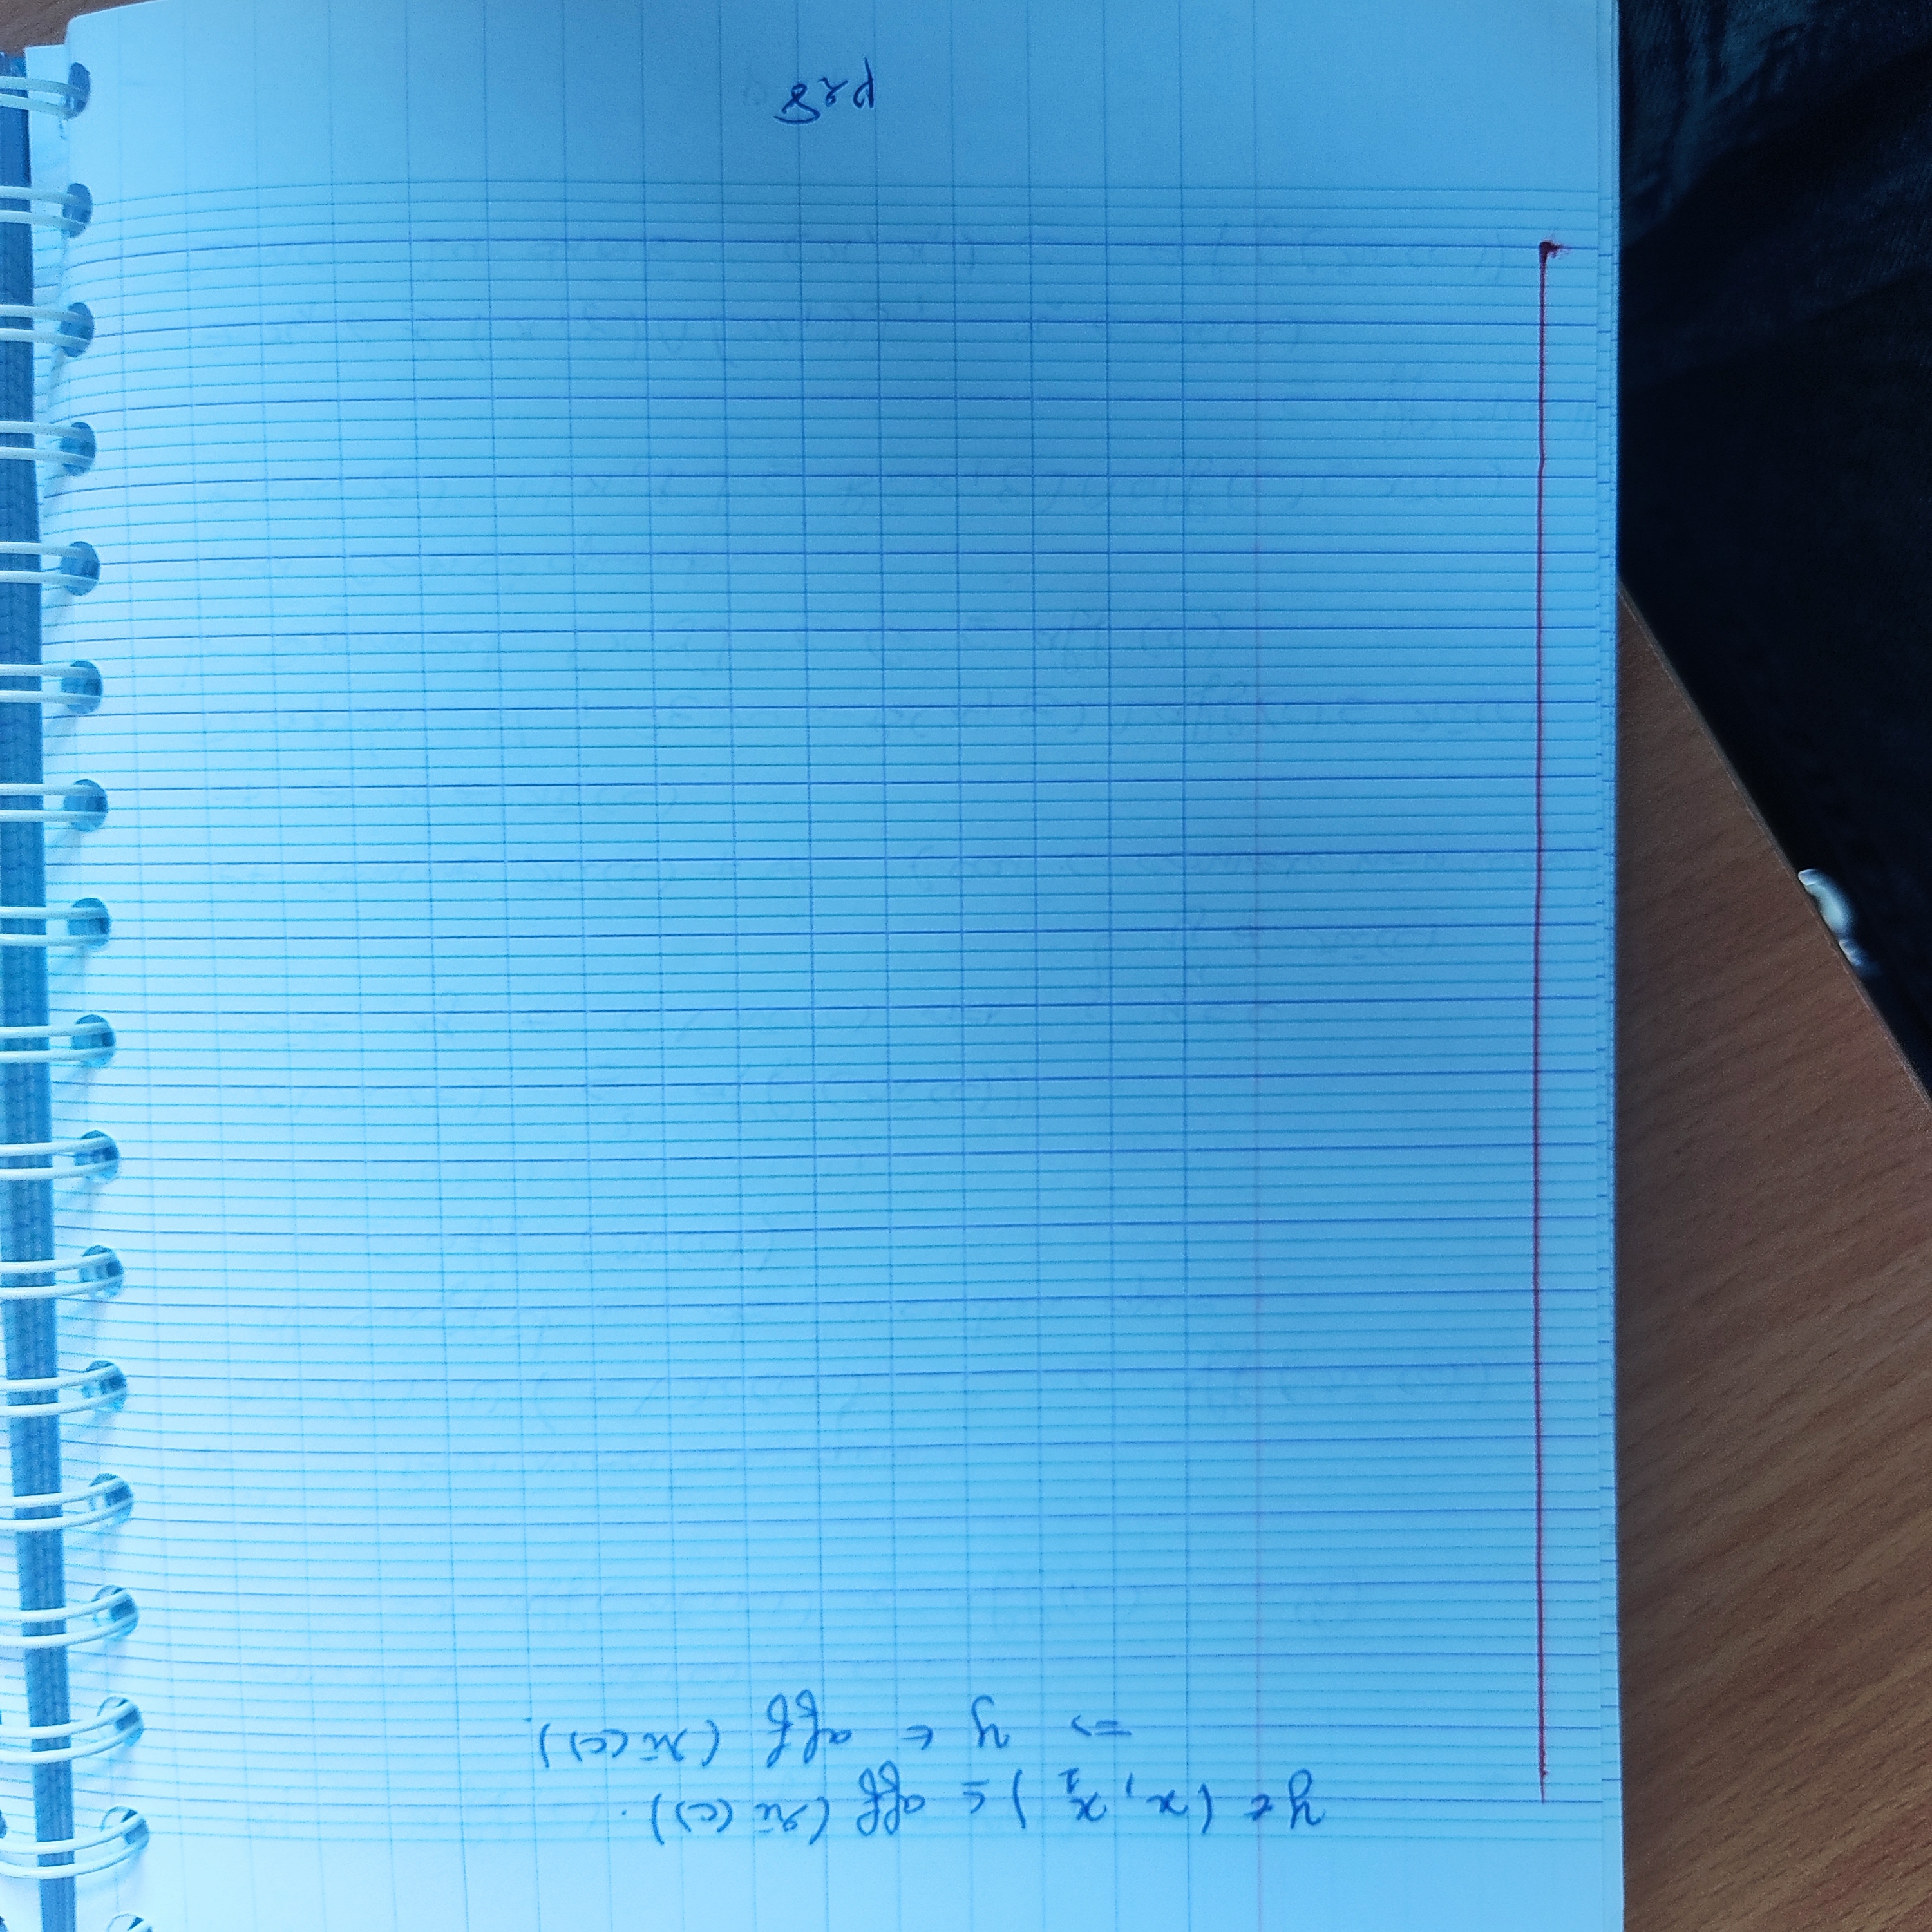 y ∈ (x, x₁) ⊆ aff (ri (c)).
⇒ y ∈ aff (ri (c)).
p28